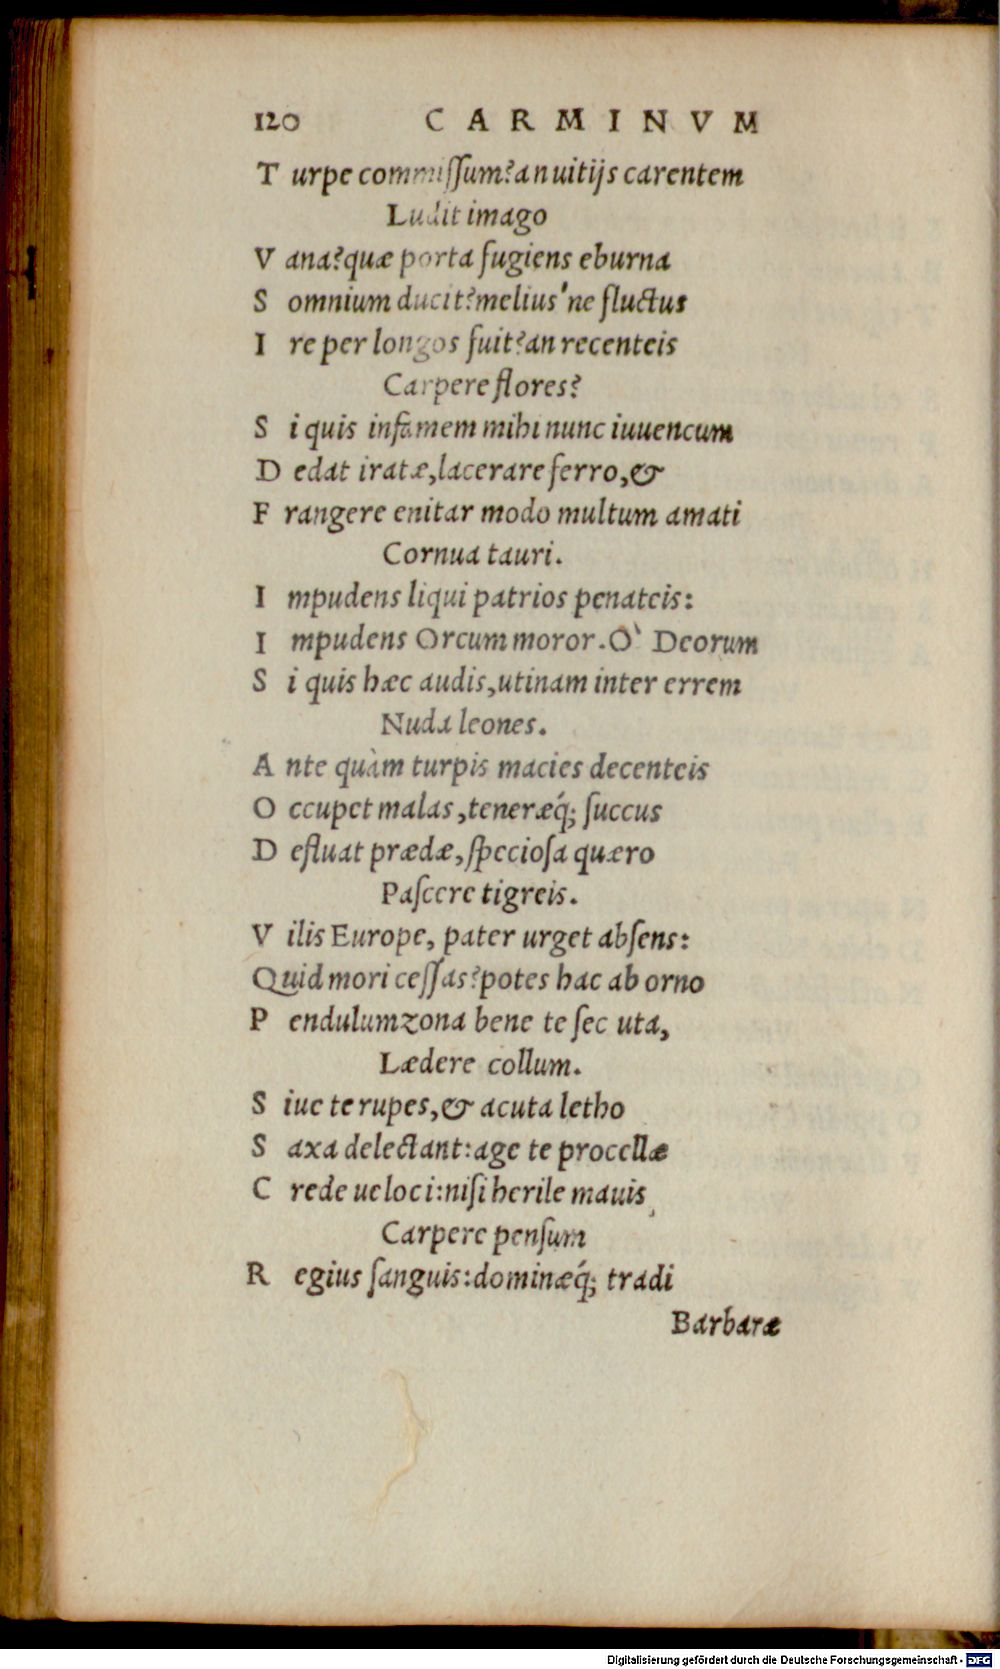 120 CARMINVM
T urpe commiſſum? an uitijs carentem
Ludit imago
V ana? quæ porta fugiens eburna
S omnium ducit? melius'ne fluctus
I re per longos fuit? an recenteis
Carpere flores?
S i quis infamem mihi nunc iuuencum
D edat iratæ, lacerare ferro, &
F rangere enitar modo multum amati
Cornua tauri.
I mpudens liqui patrios penateis:
I mpudens Orcum moror. O` Deorum
S i quis hæc audis, utinam inter errem
Nuda leones.
A nte quàm turpis macies decenteis
O ccupet malas, teneræq́; ſuccus
D efluat prædæ, ſpecioſa quæro
Paſcere tigreis.
V ilis Europe, pater urget abſens:
Quid mori ceſſas? potes hac ab orno
P endulum zona bene te ſec uta,
Lædere collum.
S iue te rupes, & acuta letho
S axa delectant: age te procellæ
C rede ueloci: niſi herile mauis
Carpere penſum
R egius ſanguis: dominæq́; tradi
Barbaræ
Digitalisierung gefördert durch die Deutsche Forschungsgemeinschaft - DFG